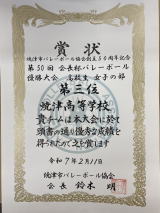 賞状
焼津市バレーボール協会創立50周年記念
第50回 会長杯バレーボール
優勝大会 高校生 女子の部
第三位
焼津高等学校
貴チームは本大会に於て
頭書の通り優秀な成績を
得られたのでこれを賞します
令和7年2月11日
焼津市バレーボール協会
会長 鈴木 明